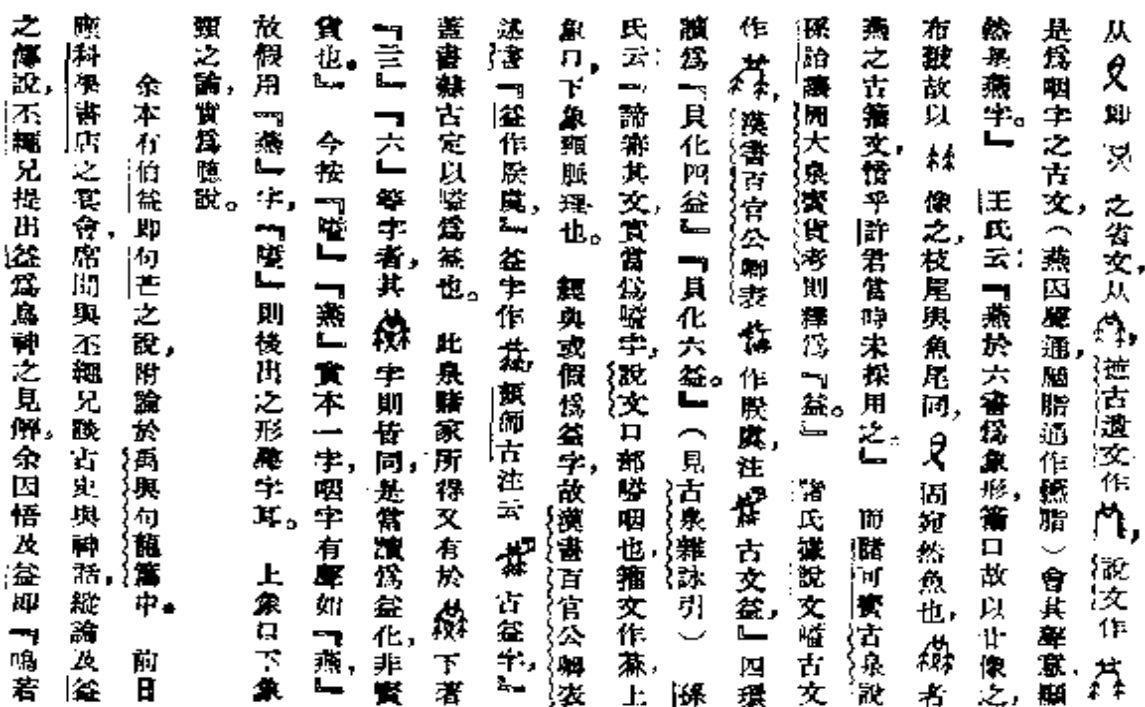 从又卽之省文，从，遮古遺文作，說文作
是爲咽字之古文，（燕因聲通，胭脂通作燕脂）會其聲意，顯
然是燕字。』　王氏云：『燕於六書爲象形，籋口故以廿像之，
布翄故以像之，枝尾與魚尾同，固宛然魚也，者
燕之古籀文，惜乎許君當時未採用之。』　而諸可寳古泉說
孫詒讓周大泉寳貨考則釋爲『益。』　諸氏據說文嗌古文
作，漢書百官公卿表作朕虞，注古文益，』四環
讀爲『貝化四益』『貝化六益。』（見古泉雜詠引）　孫
氏云：『諦審其文，實當爲嗌字，說文口部嗌咽也，籀文作，上
象口，下象頸脈理也。　經典或假爲益字，故漢書百官公卿表
述書『益作朕虞，』益字作，顏師古注云古益字，』
蓋書隸古定以嗌爲益也。　此泉賭家所得又有於下著
『三』『六』等字者，其字則皆同，是當讀爲益化，非寳
貨也。』　今按『嗌』『燕』實本一字，咽字有聲如『燕，』
故假用『燕』字，『嗌』則後出之形聲字耳。　上象口下象
頸之論，實爲臆說。
余本有伯益卽句芒之說，附論於禹與句龍篇中。　前日
應科學書店之宴會，席間與丕繩兄談古史與神話，縱論及益
之傳說，丕繩兄提出益爲鳥神之見解，余因悟及益卽『鳴若